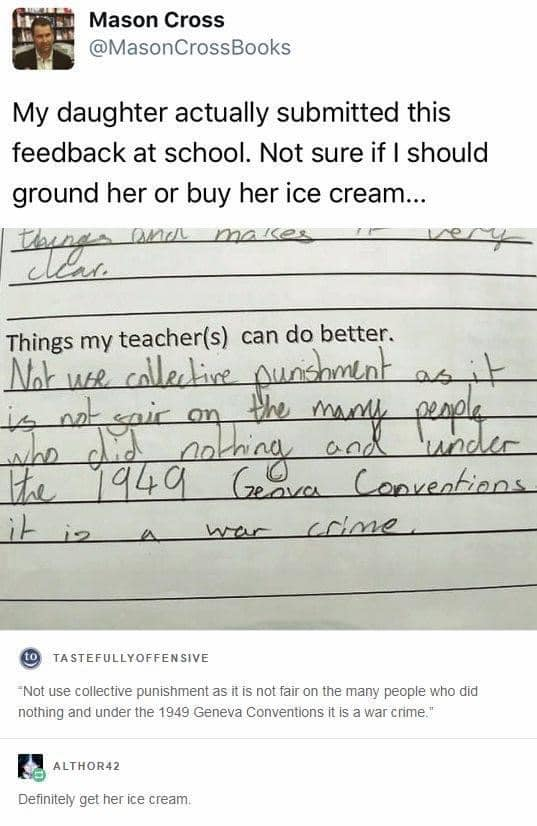 Mason Cross
@MasonCrossBooks
My daughter actually submitted this
feedback at school. Not sure if I should
ground her or buy her ice cream...
things and makes it very
clear.
Things my teacher(s) can do better.
Not use collective punishment as it
is not fair on the many people
who did nothing and under
the 1949 Geneva Conventions
it is a war crime.
to TASTEFULLYOFFENSIVE
"Not use collective punishment as it is not fair on the many people who did
nothing and under the 1949 Geneva Conventions it is a war crime."
ALTHOR42
Definitely get her ice cream.